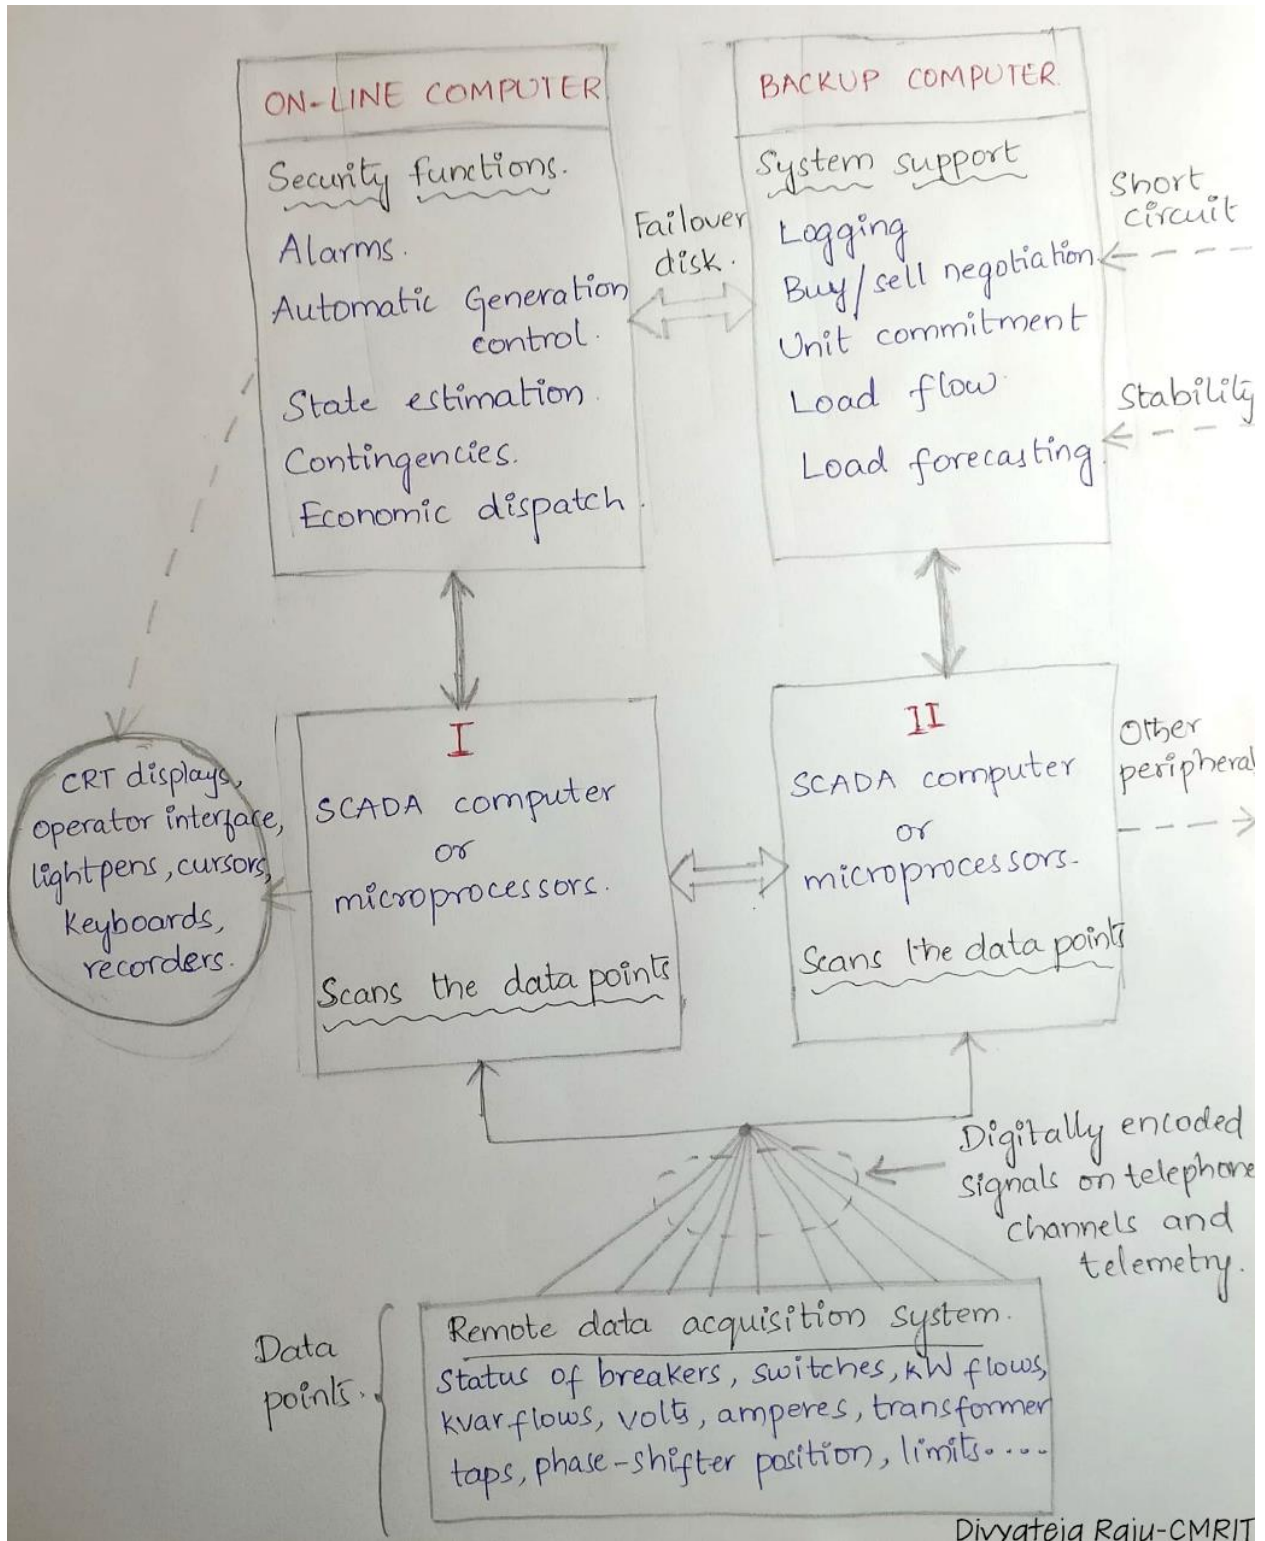 ON-LINE COMPUTER
Security functions.
Alarms.
Automatic Generation
control.
State estimation.
Contingencies.
Economic dispatch.
Failover
disk.
BACKUP COMPUTER.
System support
Logging
Buy/sell negotiation
Unit commitment
Load flow
Load forecasting.
Short
circuit
Stability
CRT displays,
operator interface,
lightpens, cursors,
Keyboards,
recorders.
I
SCADA computer
or
microprocessors.
Scans the data points
II
SCADA computer
or
microprocessors.
Scans the data points
Other
peripheral
Digitally encoded
signals on telephone
channels and
telemetry.
Data
points.
Remote data acquisition system.
Status of breakers, switches, kW flows,
kvar flows, volts, amperes, transformer
taps, phase-shifter position, limits.....
Divyateja Raju-CMRIT